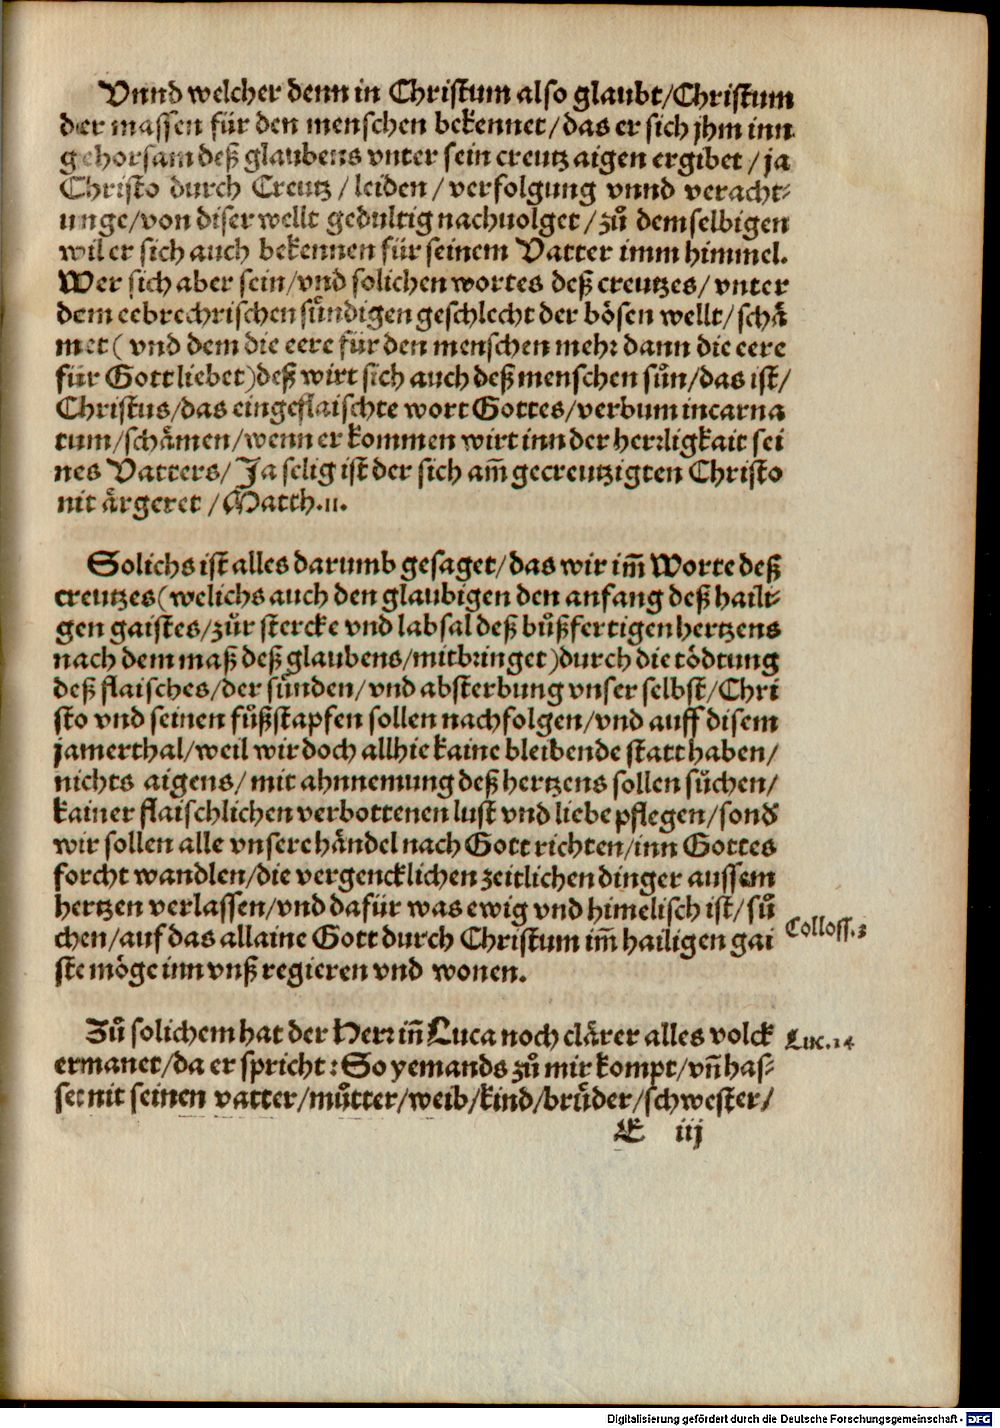 Vnnd welcher denn in Christum also glaubt/Christum
der massen für den menschen bekennet/das er sich jhm inn
gehorsam deß glaubens vnter sein creutz aigen ergibet/ja
Christo durch Creutz/leiden/verfolgung vnnd veracht⸗
unge/von diser wellt gedultig nachuolget/zů demselbigen
wil er sich auch bekennen für seinem Vatter imm himmel.
Wer sich aber sein/vnd solichen wortes deß creutzes/vnter
dem eebrechrischen sündigen geschlecht der bösen wellt/schä
met(vnd dem die eere für den menschen mehr dann die eere
für Gott liebet)deß wirt sich auch deß menschen sůn/das ist/
Christus/das eingeflaischte wort Gottes/verbum incarna
tum/schämen/wenn er kommen wirt inn der herrligkait sei
nes Vatters/Ja selig ist der sich am̄ gecreutzigten Christo
nit ärgeret/Matth.11.

Solichs ist alles darumb gesaget/das wir im̄ Worte deß
creutzes(welichs auch den glaubigen den anfang deß haili⸗
gen gaistes/zůr stercke vnd labsal deß bůßfertigen hertzens
nach dem maß deß glaubens/mitbringet)durch die tödtung
deß flaisches/der sünden/vnd absterbung vnser selbst/Chri
sto vnd seinen fůßstapfen sollen nachfolgen/vnd auff disem
jamerthal/weil wir doch allhie kaine bleibende statt haben/
nichts aigens/mit ahnnemung deß hertzens sollen sůchen/
kainer flaischlichen verbottenen lust vnd liebe pflegen/sond̕
wir sollen alle vnsere händel nach Gott richten/inn Gottes
forcht wandlen/die vergencklichen zeitlichen dinger aussem
hertzen verlassen/vnd dafür was ewig vnd himelisch ist/sů
chen/auf das allaine Gott durch Christum im̄ hailigen gai
ste möge inn vnß regieren vnd wonen.
Colloss.3

Zů solichem hat der Herr in̄ Luca noch clärer alles volck
Luc.14
ermanet/da er spricht:So yemands zů mir kompt/vn̄ has⸗
set nit seinen vatter/můtter/weib/kind/brůder/schwester/
E iij
Digitalisierung gefördert durch die Deutsche Forschungsgemeinschaft - DFG